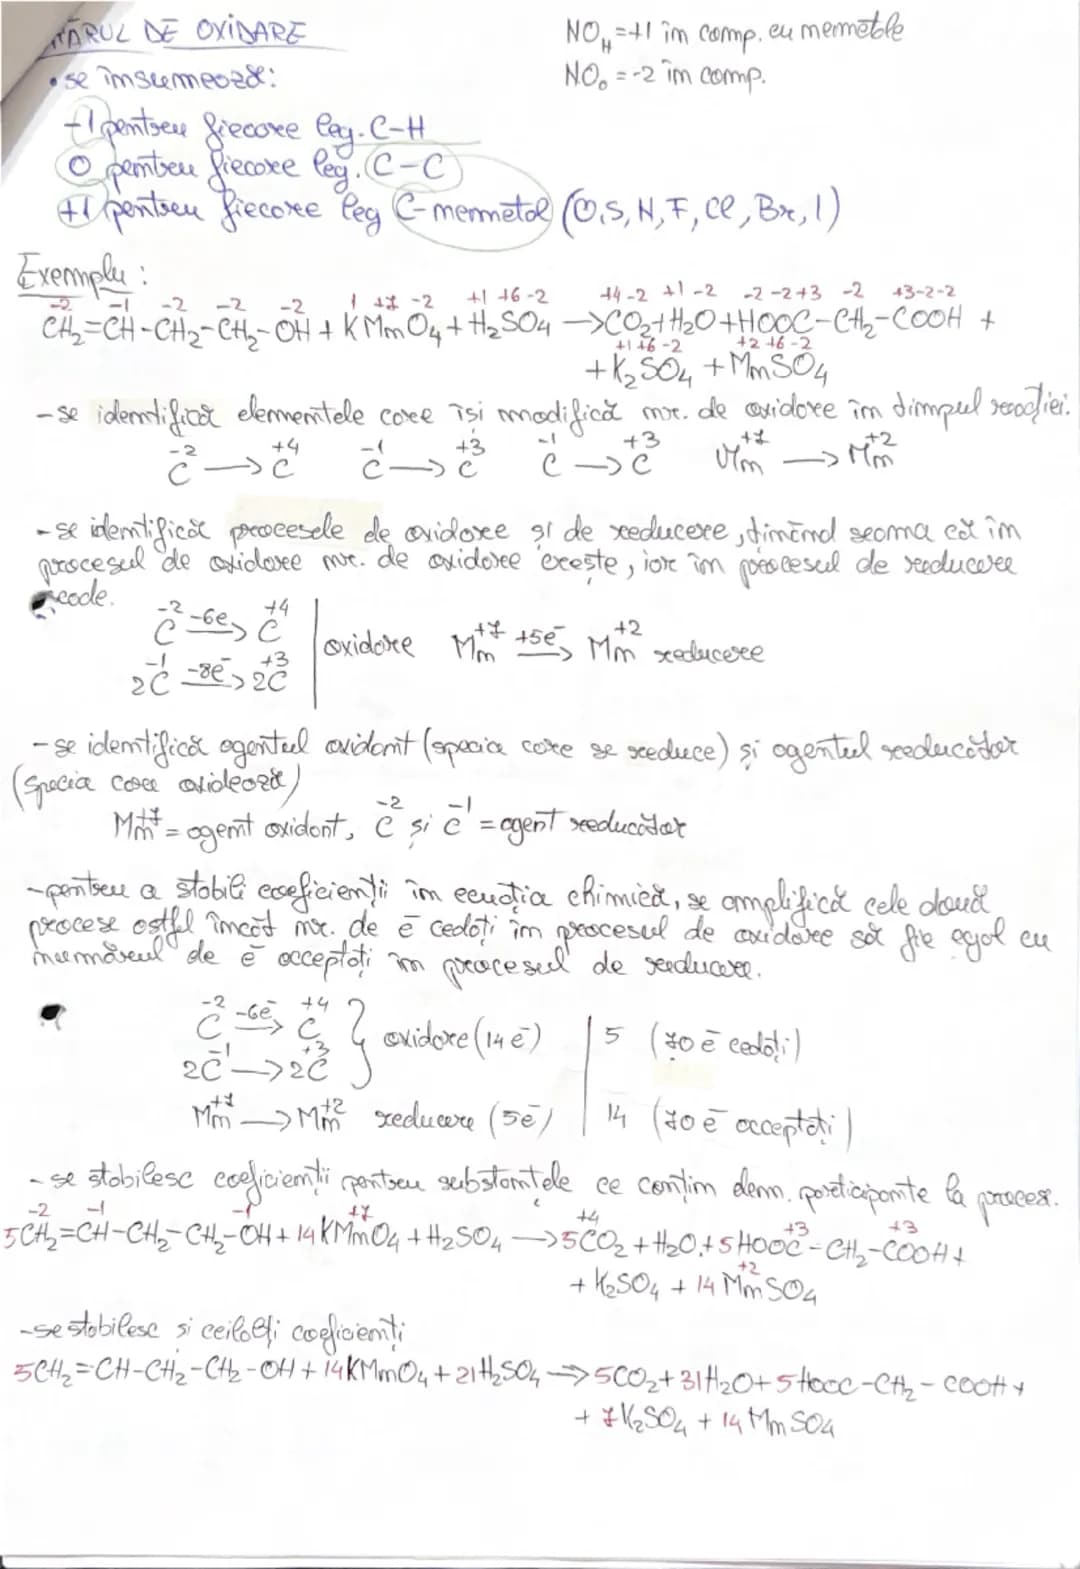 NUMĂRUL DE OXIDARE
NO_H = +1 în comp. cu nemetale
NO_O = -2 în comp.
• se însumează:
-1 pentru fiecare leg. C-H
0 pentru fiecare leg. C-C
+1 pentru fiecare leg C-nemetal (O, S, N, F, Cl, Br, I)
Exemplu:
-2 -1 -2 -2 -2 1 +7 -2 +1 +6 -2 +4 -2 +1 -2 -2 -2 +3 -2 +3 -2 -2
CH₂=CH-CH₂-CH₂-OH + KMnO₄ + H₂SO₄ → CO₂ + H₂O + HOOC-CH₂-COOH +
+1 +6 -2 +2 +6 -2
+ K₂SO₄ + MnSO₄
- se identifică elementele care își modifică nr. de oxidare în timpul reacției.
C⁻² → C⁺⁴ C⁻¹ → C⁺³ C⁻¹ → C⁺³ Mn⁺⁷ → Mn⁺²
- se identifică procesele de oxidare și de reducere, ținând seama că în
procesul de oxidare nr. de oxidare crește, iar în procesul de reducere
scade.
C⁻² -6e⁻→ C⁺⁴ | oxidare Mn⁺⁷ +5e⁻→ Mn⁺² reducere
2C⁻¹ -8e⁻→ 2C⁺³
- se identifică agentul oxidant (specia care se reduce) și agentul reducător
(specia care oxidează)
Mn⁺⁷ = agent oxidant, C⁻² și C⁻¹ = agent reducător
- pentru a stabili coeficienții în ecuația chimică, se amplifică cele două
procese astfel încât nr. de e⁻ cedați în procesul de oxidare să fie egal cu
numărul de e⁻ acceptați în procesul de reducere.
C⁻² -6e⁻→ C⁺⁴ } oxidare (14 e⁻) | 5 (70 e⁻ cedați)
2C⁻¹ → 2C⁺³
Mn⁺⁷ → Mn⁺² reducere (5e⁻) | 14 (70 e⁻ acceptați)
- se stabilesc coeficienții pentru substanțele ce conțin elem. participante la proces.
-2 -1 -1 +7 +4 +3 +3
5CH₂=CH-CH₂-CH₂-OH + 14KMnO₄ + H₂SO₄ → 5CO₂ + H₂O + 5HOOC-CH₂-COOH +
+2
+ K₂SO₄ + 14MnSO₄
- se stabilesc și ceilalți coeficienți
5CH₂=CH-CH₂-CH₂-OH + 14KMnO₄ + 21H₂SO₄ → 5CO₂ + 31H₂O + 5HOOC-CH₂-COOH +
+ 7K₂SO₄ + 14MnSO₄